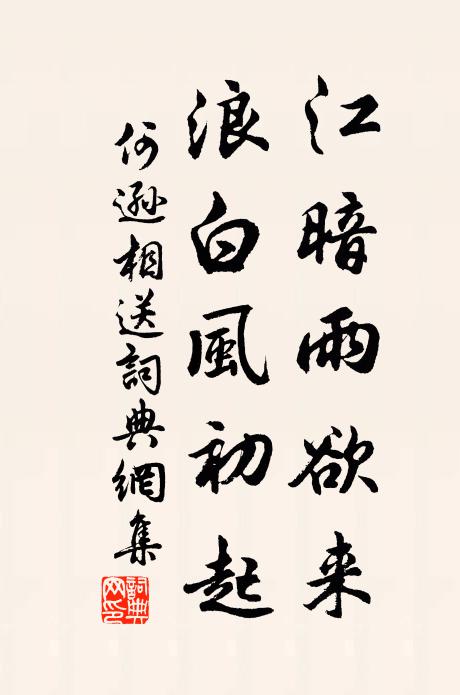 江暗雨欲来
浪白風初起
何遜相送詞典網集
詞典網印